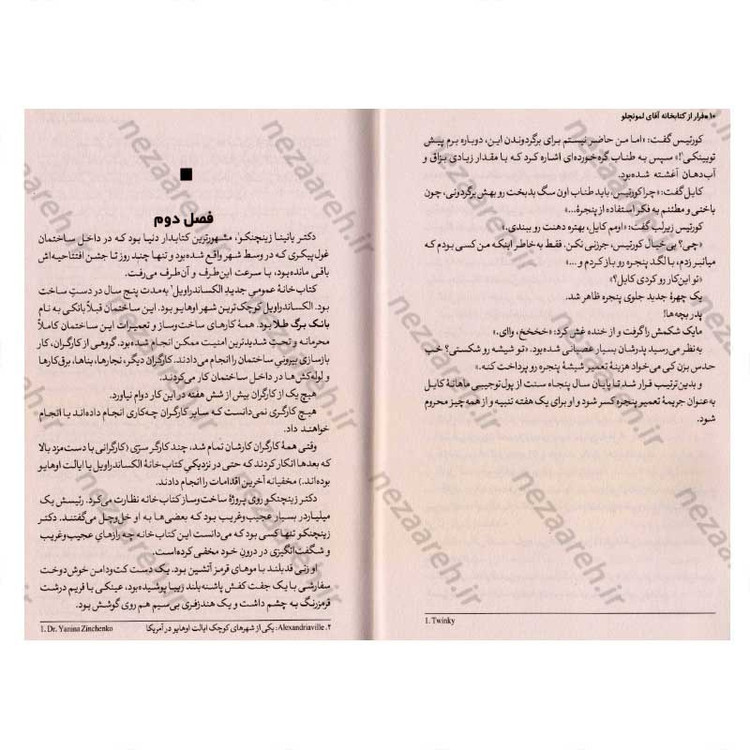 ۱۰ • فرار از کتابخانه آقای لمونچلو
کورتیس گفت: «اما من حاضر نیستم برای برگردوندن این، دوباره برم پیش
توینکی۱!» سپس به طناب گره‌خورده‌ای اشاره کرد که با مقدار زیادی بزاق و
آب‌دهان آغشته شده‌بود.
کایل گفت: «چرا کورتیس، باید طناب اون سگ بدبخت رو بهش برگردونی، چون
باختی و مطمئنم به فکر استفاده از پنجرهٔ...»
کورتیس زیرلب گفت: «اومم کایل، بهتره دهنت رو ببندی.»
«چی؟ بی‌خیال کورتیس، جرزنی نکن. فقط به‌خاطر اینکه من کسی بودم که
میانبر زدم، با لگد پنجره رو باز کردم و ...»
«تو این‌کار رو کردی کایل؟»
یک چهرهٔ جدید جلوی پنجره ظاهر شد.
پدر بچه‌ها!
مایک شکمش را گرفت و از خنده غش کرد: «خخخخخ، وااای.»
به‌نظر می‌رسید پدرشان بسیار عصبانی شده‌بود. «تو شیشه رو شکستی؟ خب
حدس بزن کی می‌خواد هزینهٔ تعمیر شیشهٔ پنجره رو پرداخت کنه.»
و بدین‌ترتیب قرار شد تا پایان سال پنجاه سنت از پول‌توجیبی ماهانهٔ کایل
به‌عنوان جریمهٔ تعمیر پنجره کسر شود و او برای یک هفته تنبیه و از همه‌چیز محروم
شود.
1. Twinky
فصل دوم
دکتر یانینا زینچنکو۱، مشهورترین کتابدار دنیا بود که در داخل ساختمان
غول‌پیکری که در وسط شهر واقع شده‌بود و تنها چند روز تا جشن افتتاحیه‌اش
باقی مانده‌بود، با سرعت این‌طرف و آن‌طرف می‌رفت.
کتاب‌خانهٔ عمومی جدیدِ الکساندراویل۲ به‌مدت پنج سال در دستِ ساخت
بود. الکساندراویل کوچک‌ترین شهر اوهایو بود. این ساختمان قبلاً بانکی به نام
بانک برگ طلا بود. همهٔ کارهای ساخت‌وساز و تعمیرات این ساختمان کاملاً
محرمانه و تحت شدیدترین امنیت ممکن انجام شده‌بود. گروهی از کارگران، کار
بازسازی بیرونی ساختمان را انجام می‌دادند. کارگران دیگر، نجارها، بناها، برق‌کارها
و لوله‌کش‌ها در داخل ساختمان کار می‌کردند.
هیچ یک از کارگران بیش از شش هفته در این کار دوام نیاورد.
هیچ کارگری نمی‌دانست که سایر کارگران چه‌کاری انجام داده‌اند یا انجام
خواهند داد.
وقتی همهٔ کارگران کارشان تمام شد، چند کارگر سرّی (کارگرانی با دست‌مزد بالا
که بعدها انکار کردند که حتی در نزدیکی کتاب‌خانهٔ الکساندراویل یا ایالت اوهایو
بوده‌اند.) مخفیانه آخرین اقدامات را انجام دادند.
دکتر زینچنکو روی پروژهٔ ساخت‌وساز کتاب‌خانه نظارت می‌کرد. رئیسش یک
میلیاردر بسیار عجیب‌وغریب بود که بعضی‌ها به او خل‌وچل می‌گفتند. دکتر
زینچنکو تنها کسی بود که می‌دانست این کتاب‌خانه چه رازهای عجیب‌وغریب و
شگفت‌انگیزی در درون خود مخفی کرده‌است.
او زنی قدبلند با موهای قرمز آتشین بود. یک دست کت‌ودامن خوش‌دوخت
سفارشی با یک جفت کفش پاشنه‌بلند زیبا پوشیده‌بود، عینکی با فریم درشت
قرمزرنگ به چشم داشت و یک هندزفری بی‌سیم هم روی گوشش بود.
1. Dr. Yanina Zinchenko
۲. Alexandriaville: یکی از شهرهای کوچک ایالت اوهایو در آمریکا
nezaareh.ir